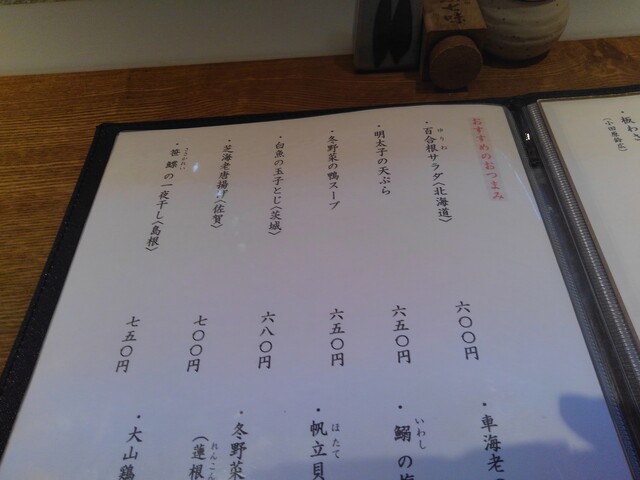 七味
・板わさ
(小田原鈴広
おすすめのおつまみ
ゆりね
・百合根サラダ〈北海道〉 六〇〇円
・明太子の天ぷら 六五〇円
・冬野菜の鴨スープ 六五〇円
・白魚の玉子とじ〈茨城〉 六八〇円
・芝海老唐揚げ〈佐賀〉 七〇〇円
・笹鰈の一夜干し〈島根〉 七五〇円
・車海老の
いわし
・鰯の梅
ほたて
・帆立貝
・冬野菜
れんこん
(蓮根
・大山鶏